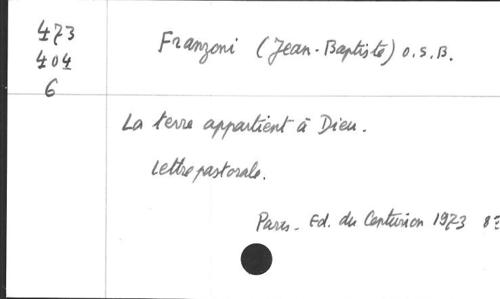 473
404
6
Franzoni (Jean-Baptiste) O.S.B.
La terre appartient à Dieu.
Lettre pastorale.
Paris. Ed. du Centurion 1973 8º